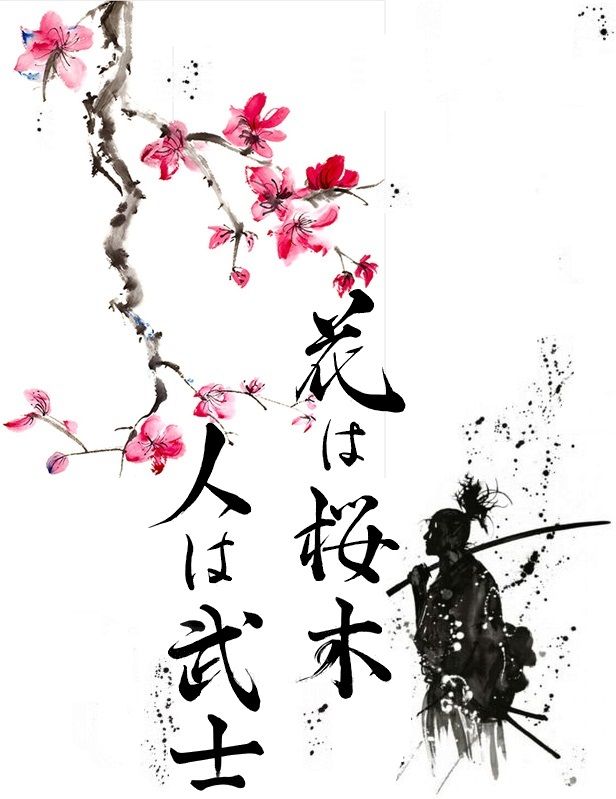 花は桜木
人は武士